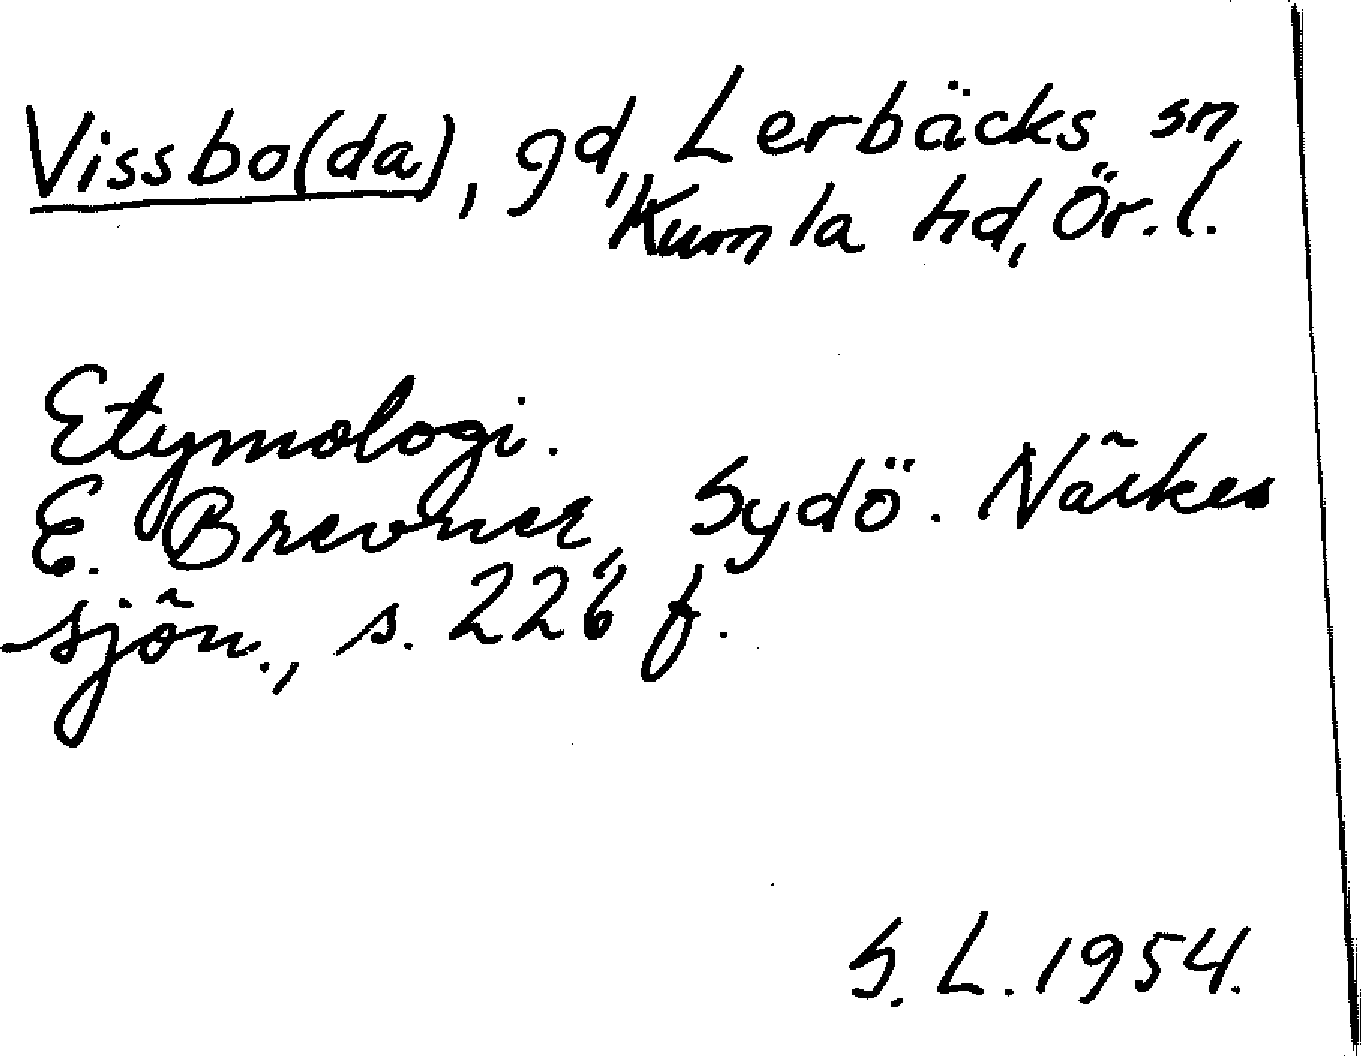 Vissbo(da), gd, Lerbäcks sn,
Kumla hd, Ör. l.
Etymologi.
E. Brevner, Sydö. Närkes
sjön., s. 226 f.
S. L. 1954.